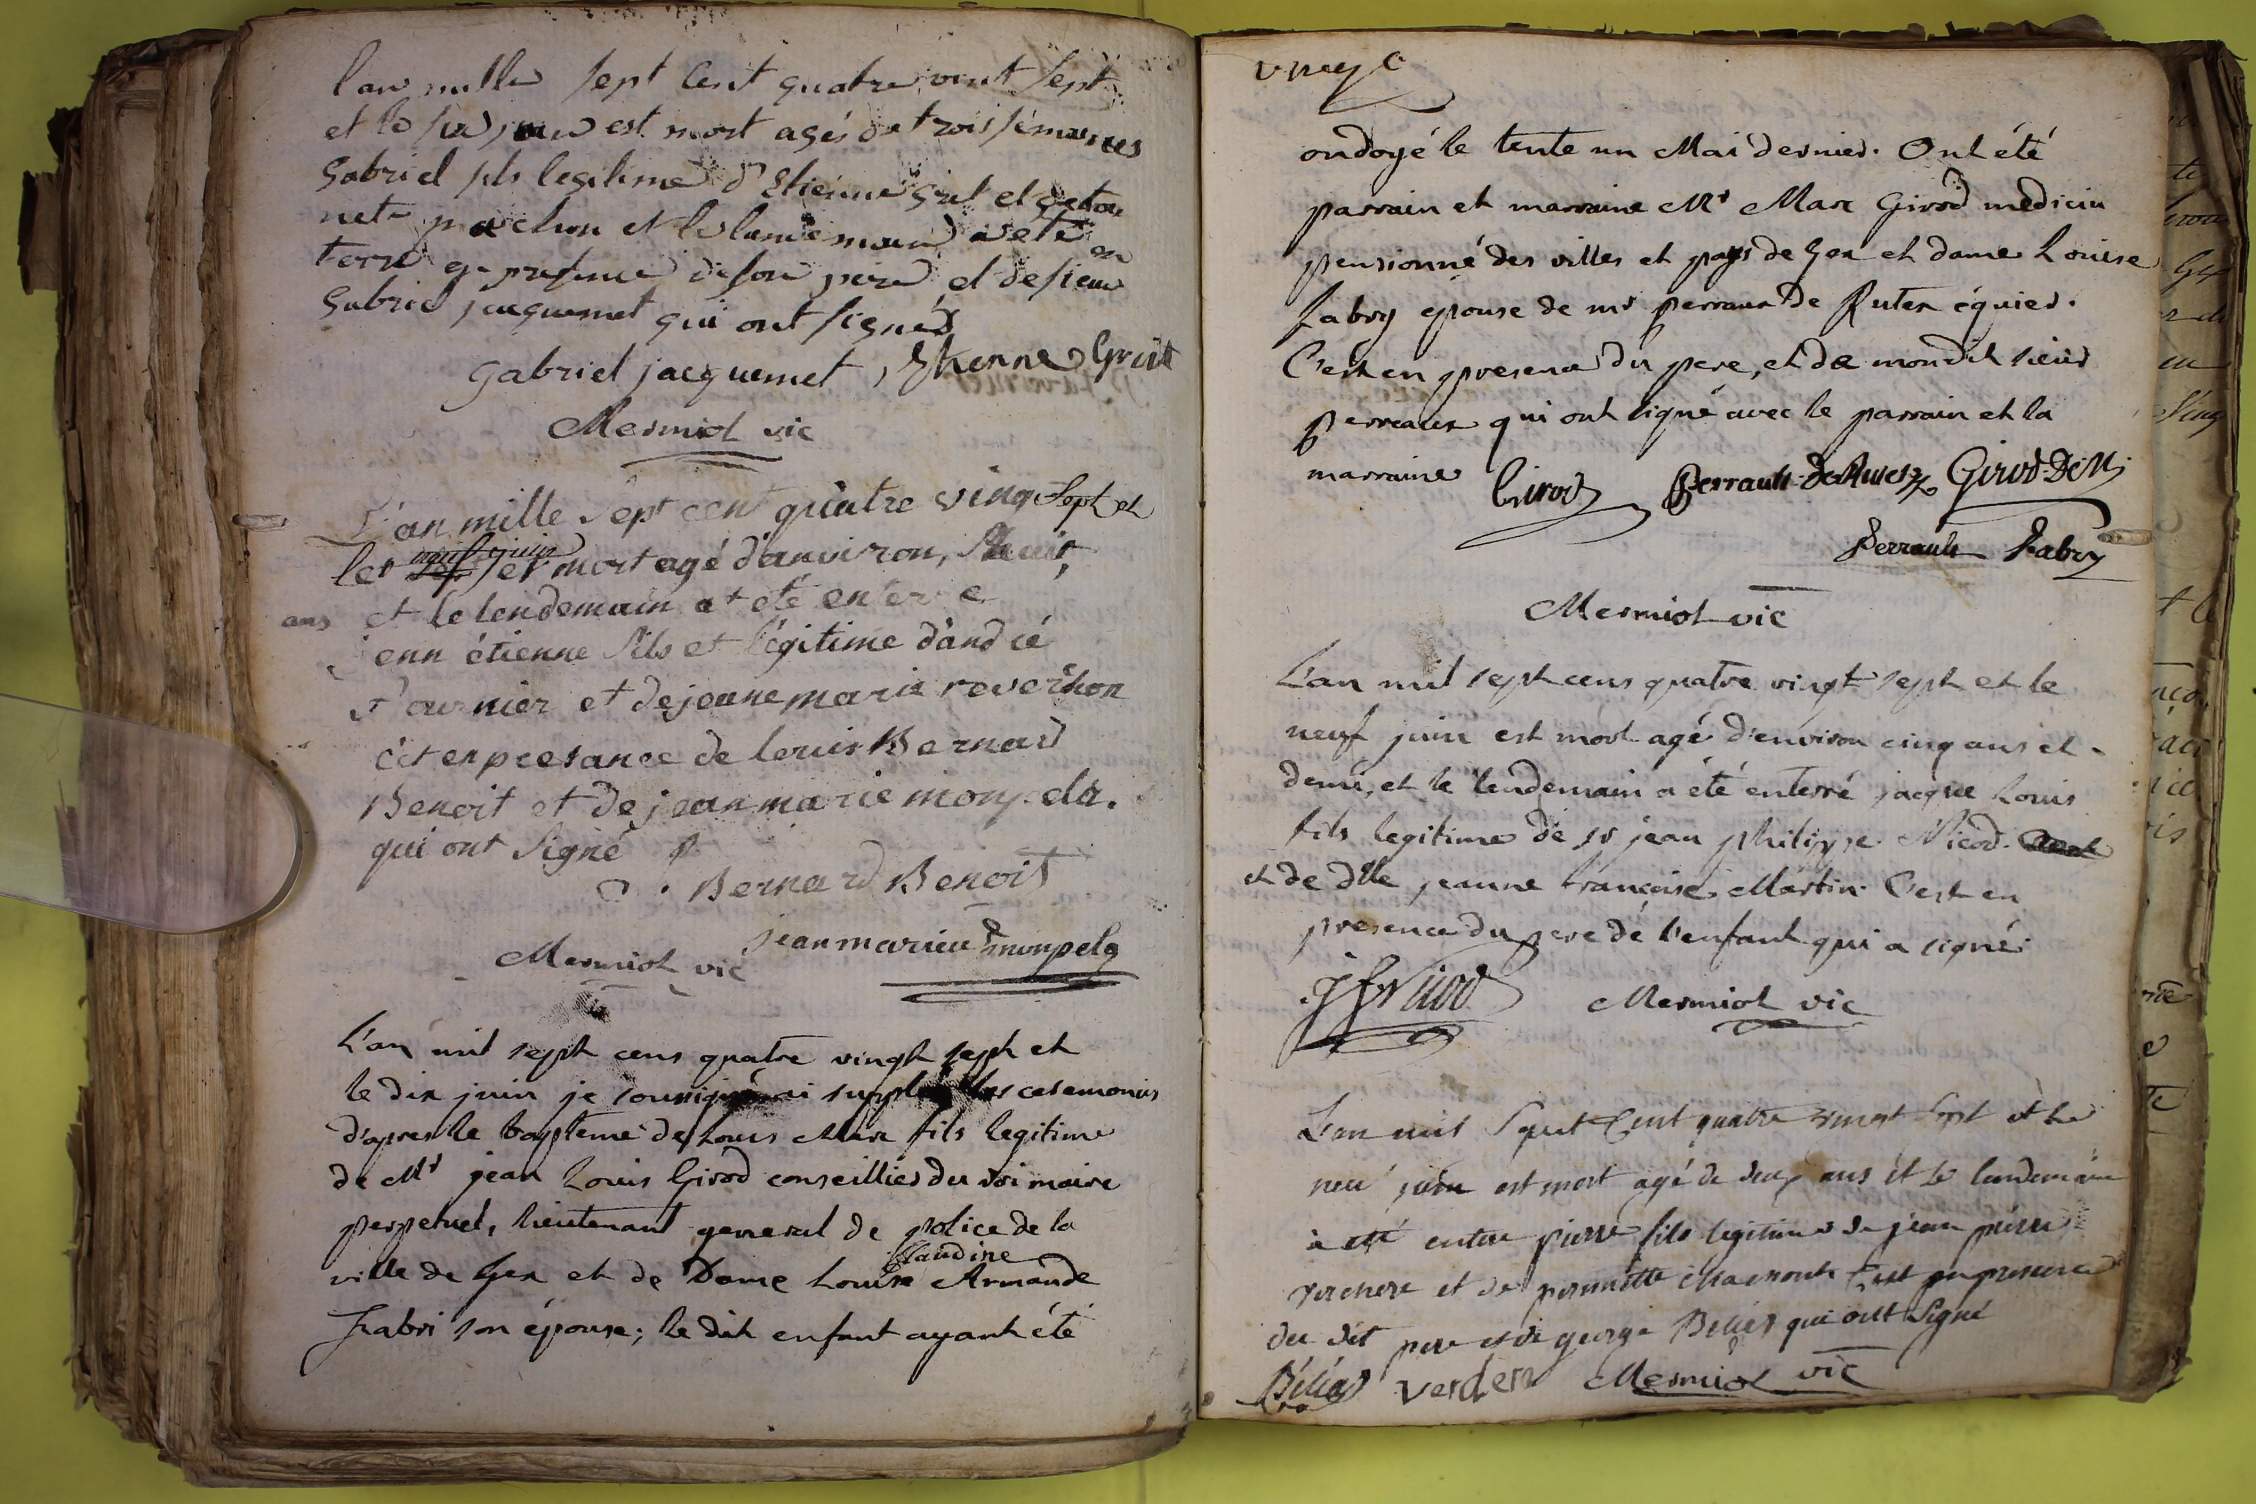 l'an mille sept Cent quatre vint sept
et le six juin est mort agés de trois semaines
Gabriel fils legitime d'Etienne Grit et
net marchon et le landemain a été en
terré en presence de son pere et de sieur
Gabriel jacquemet qui ont signés
gabriel jacquemet, Etienne
Mermiol vic
L'an mille sept cent quatre vingt sept et
le neuf juin est mort agé d'anviron, huit,
ans et le lendemain at eté enter e
jenn étienne fils et légitime d'andre
fournier et de jeane marie reverchon
c'et en presance de louis Bernard
Benoit et de jean marie monpela.
qui ont Signé
Bernard Benoit
jean marieu monpela
Mermiol vic
L'an mil sept cens quatre vingt sept et
le dix juin je soussigné ai supplée les ceremonies
d'apres le bapteme de Louis Marc fils legitime
de Mr jean Louis Girod conseillier du roi maire
perpetuel, lieutenant general de police de la
claudine
ville de Gex et de Dame Louise Armande
Fabri son épouse; le dit enfant ayant été
ondoyé le tente un Mai dernier. Ont été
parrain et marraine Mr Marc Girod medicin
pensionné des villes et pays de Gex et dame Louise
Fabry epouse de mr perraux De Rutex équier.
C'est en presence du pere, et de mondit sieur
perraux qui ont signé avec le parrain et la
marraine Girod Perrault-de Rutet Girod-De M.
Perrault Fabry
Mermiol vic
L'an mil sept cens quatre vingt sept et le
neuf juin est mort agé d'environ cinq ans et
demi, et le lendemain a été enterré jacque Louis
fils legitime de sr jean philippe Nicod
et de dlle jeanne françoise Martin. C'est en
presence du pere de l'enfant qui a signé.
Nicod Mermiol vic
L'an mil Sept Cent quatre vingt Sept et le
neu juin est mort agé de deux ans et le landemain
a été enterre pierre fils legitime de jean pierre
verchere et de pernette C'est en presence
du dit pere et de george Béliés qui ont Signé
Béliés verchere Mermiol vic